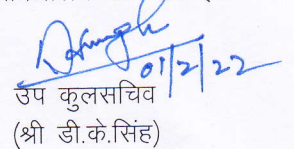 01/2/22
उप कुलसचिव
(श्री डी.के.सिंह)